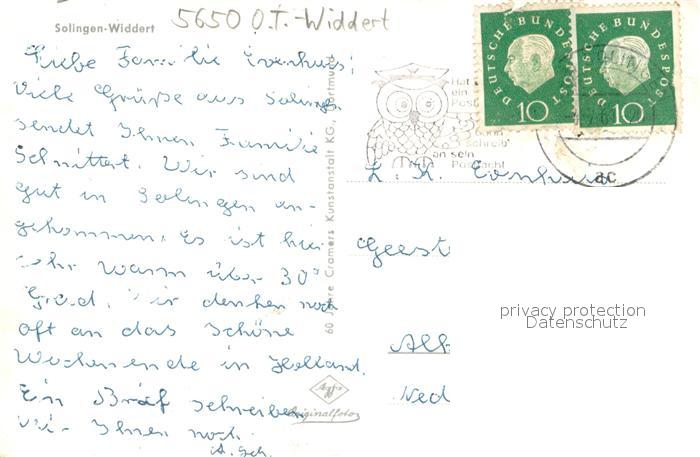 5650 O.T.-Widdert
Solingen-Widdert
Liebe Familie
Viele Grüße aus Solingen
sendet Ihnen Familie
Schnittert. Wir sind
gut in Solingen an-
gekommen. Es ist hier
sehr warm über 30°
Grad. Wir denken noch
oft an das schöne
Wochenende in Holland.
Ein Brief schreiben
wir Ihnen noch.
60 Jahre Cramers Kunstanstalt KG., Dortmund
Agfa
Originalfoto
DEUTSCHE BUNDESPOST
10
DEUTSCHE BUNDESPOST
10
Hat
ein
Post
schreib'
an sein
Postfach
ac
Geest
All
Ned
privacy protection
Datenschutz